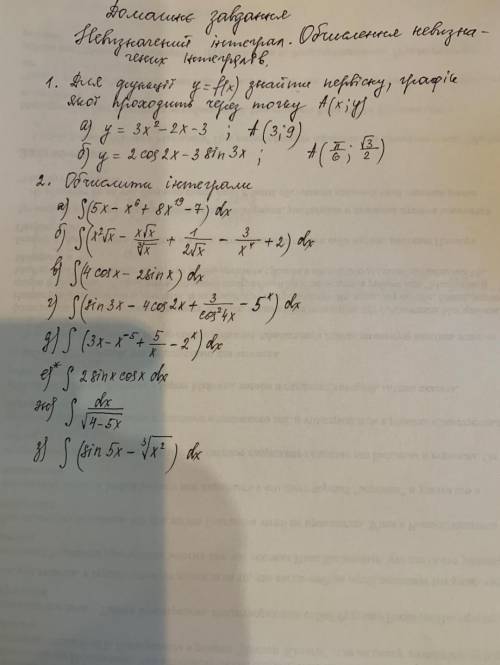 Домашнє завдання
Невизначений інтеграл. Обчислення невизна-
чених інтегралів.
1. Для функції y=f(x) знайти первісну, графік
якої проходить через точку A(x;y)
а) y = 3x²-2x-3 ; A(3;9)
б) y = 2cos2x-3sin3x ; A(π/6; √3/2)
2. Обчислити інтеграли
а) ∫(5x - x⁶ + 8x¹⁹ - 7) dx
в) ∫(4cosx - 2sinx) dx
г) ∫(sin3x - 4cos2x + 3/cos²4x - 5ˣ) dx
д) ∫(3x - x⁻⁵ + 5/x - 2ˣ) dx
е)* ∫ 2sinxcosx dx
ж) ∫ dx/√(4-5x)
з) ∫ (sin5x - ³√x²) dx